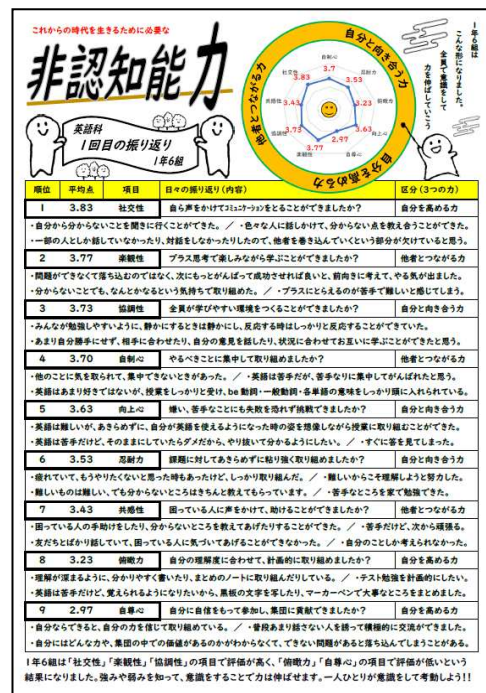 これからの時代を生きるために必要な
非認知能力
英語科
1回目の振り返り
1年6組
自分と向き合う力
他者とつながる力
自分を高める力
自制心
3.7
忍耐力
3.53
俯瞰力
3.23
向上心
3.63
自尊心
2.97
楽観性
3.77
協調性
3.73
共感性
3.43
社交性
3.83
1年6組は
こんな形になりました。
全員で意識をして
力を伸ばしていこう
順位 平均点 項目 日々の振り返り(内容) 区分(3つの力)
1 3.83 社交性 自ら声をかけてコミュニケーションをとることができましたか? 自分を高める力
・自分から分からないことを聞きに行くことができた。 / ・色々な人に話しかけて、分からない点を教え合うことができた。
・一部の人としか話していなかったり、対話をしなかったりしたので、他者を巻き込んでいくという部分が欠けていると思う。
2 3.77 楽観性 プラス思考で楽しみながら学ぶことができましたか? 他者とつながる力
・問題ができなくて落ち込むのではなく、次にもっとがんばって成功させれば良いと、前向きに考えて、やる気が出ました。
・分からないことでも、なんとかなるという気持ちで取り組めた。 / ・プラスにとらえるのが苦手で難しいと感じてしまう。
3 3.73 協調性 全員が学びやすい環境をつくることができましたか? 自分と向き合う力
・みんなが勉強しやすいように、静かにするときは静かにし、反応する時はしっかりと反応することができていた。
・あまり自分勝手にせず、相手に合わせたり、自分の意見を話したり、状況に合わせてお互いに学ぶことができたと思う。
4 3.70 自制心 やるべきことに集中して取り組めましたか? 他者とつながる力
・他のことに気を取られて、集中できないときがあった。 / ・英語は苦手だが、苦手なりに集中してがんばれたと思う。
・英語はあまり好きではないが、授業をしっかりと受け、be動詞・一般動詞・各単語の意味をしっかり頭に入れられている。
5 3.63 向上心 嫌い、苦手なことにも失敗を恐れず挑戦できましたか? 自分と向き合う力
・英語は難しいが、あきらめずに、自分が英語を使えるようになった時の姿を想像しながら授業に取り組むことができた。
・英語は苦手だけど、そのままにしていたらダメだから、やり抜いて分かるようにしたい。 / ・すぐに答を見てしまった。
6 3.53 忍耐力 課題に対してあきらめずに粘り強く取り組めましたか? 自分と向き合う力
・疲れていて、もうやりたくないと思った時もあったけど、しっかり取り組んだ。 / ・難しいからこそ理解しようと努力した。
・難しいものは難しい、でも分からないところはきちんと教えてもらっています。 / ・苦手なところを家で勉強できた。
7 3.43 共感性 困っている人に声をかけて、助けることができましたか? 他者とつながる力
・困っている人の手助けをしたり、分からないところを教えてあげたりすることができた。 / ・苦手だけど、次から頑張る。
・友だちとばかり話していて、困っている人に気づいてあげることができなかった。 / ・自分のことしか考えられなかった。
8 3.23 俯瞰力 自分の理解度に合わせて、計画的に取り組めましたか? 自分を高める力
・理解が深まるように、分かりやすく書いたり、まとめのノートに取り組んだりしている。 / ・テスト勉強を計画的にしたい。
・英語は苦手だけど、覚えられるようになりたいから、黒板の文字を写したり、マーカーペンで大事なところをまとめました。
9 2.97 自尊心 自分に自信をもって参加し、集団に貢献できましたか? 自分を高める力
・自分ならできると、自分の力を信じて取り組めている。 / ・普段あまり話さない人を誘って積極的に交流ができました。
・自分にはどんな力や、集団の中での価値があるのかがわからなくて、できない問題があると落ち込んでしまうことがある。
1年6組は「社交性」「楽観性」「協調性」の項目で評価が高く、「俯瞰力」「自尊心」の項目で評価が低いという
結果になりました。強みや弱みを知って、意識をすることで力は伸ばせます。一人ひとりが意識をして考動しよう!!